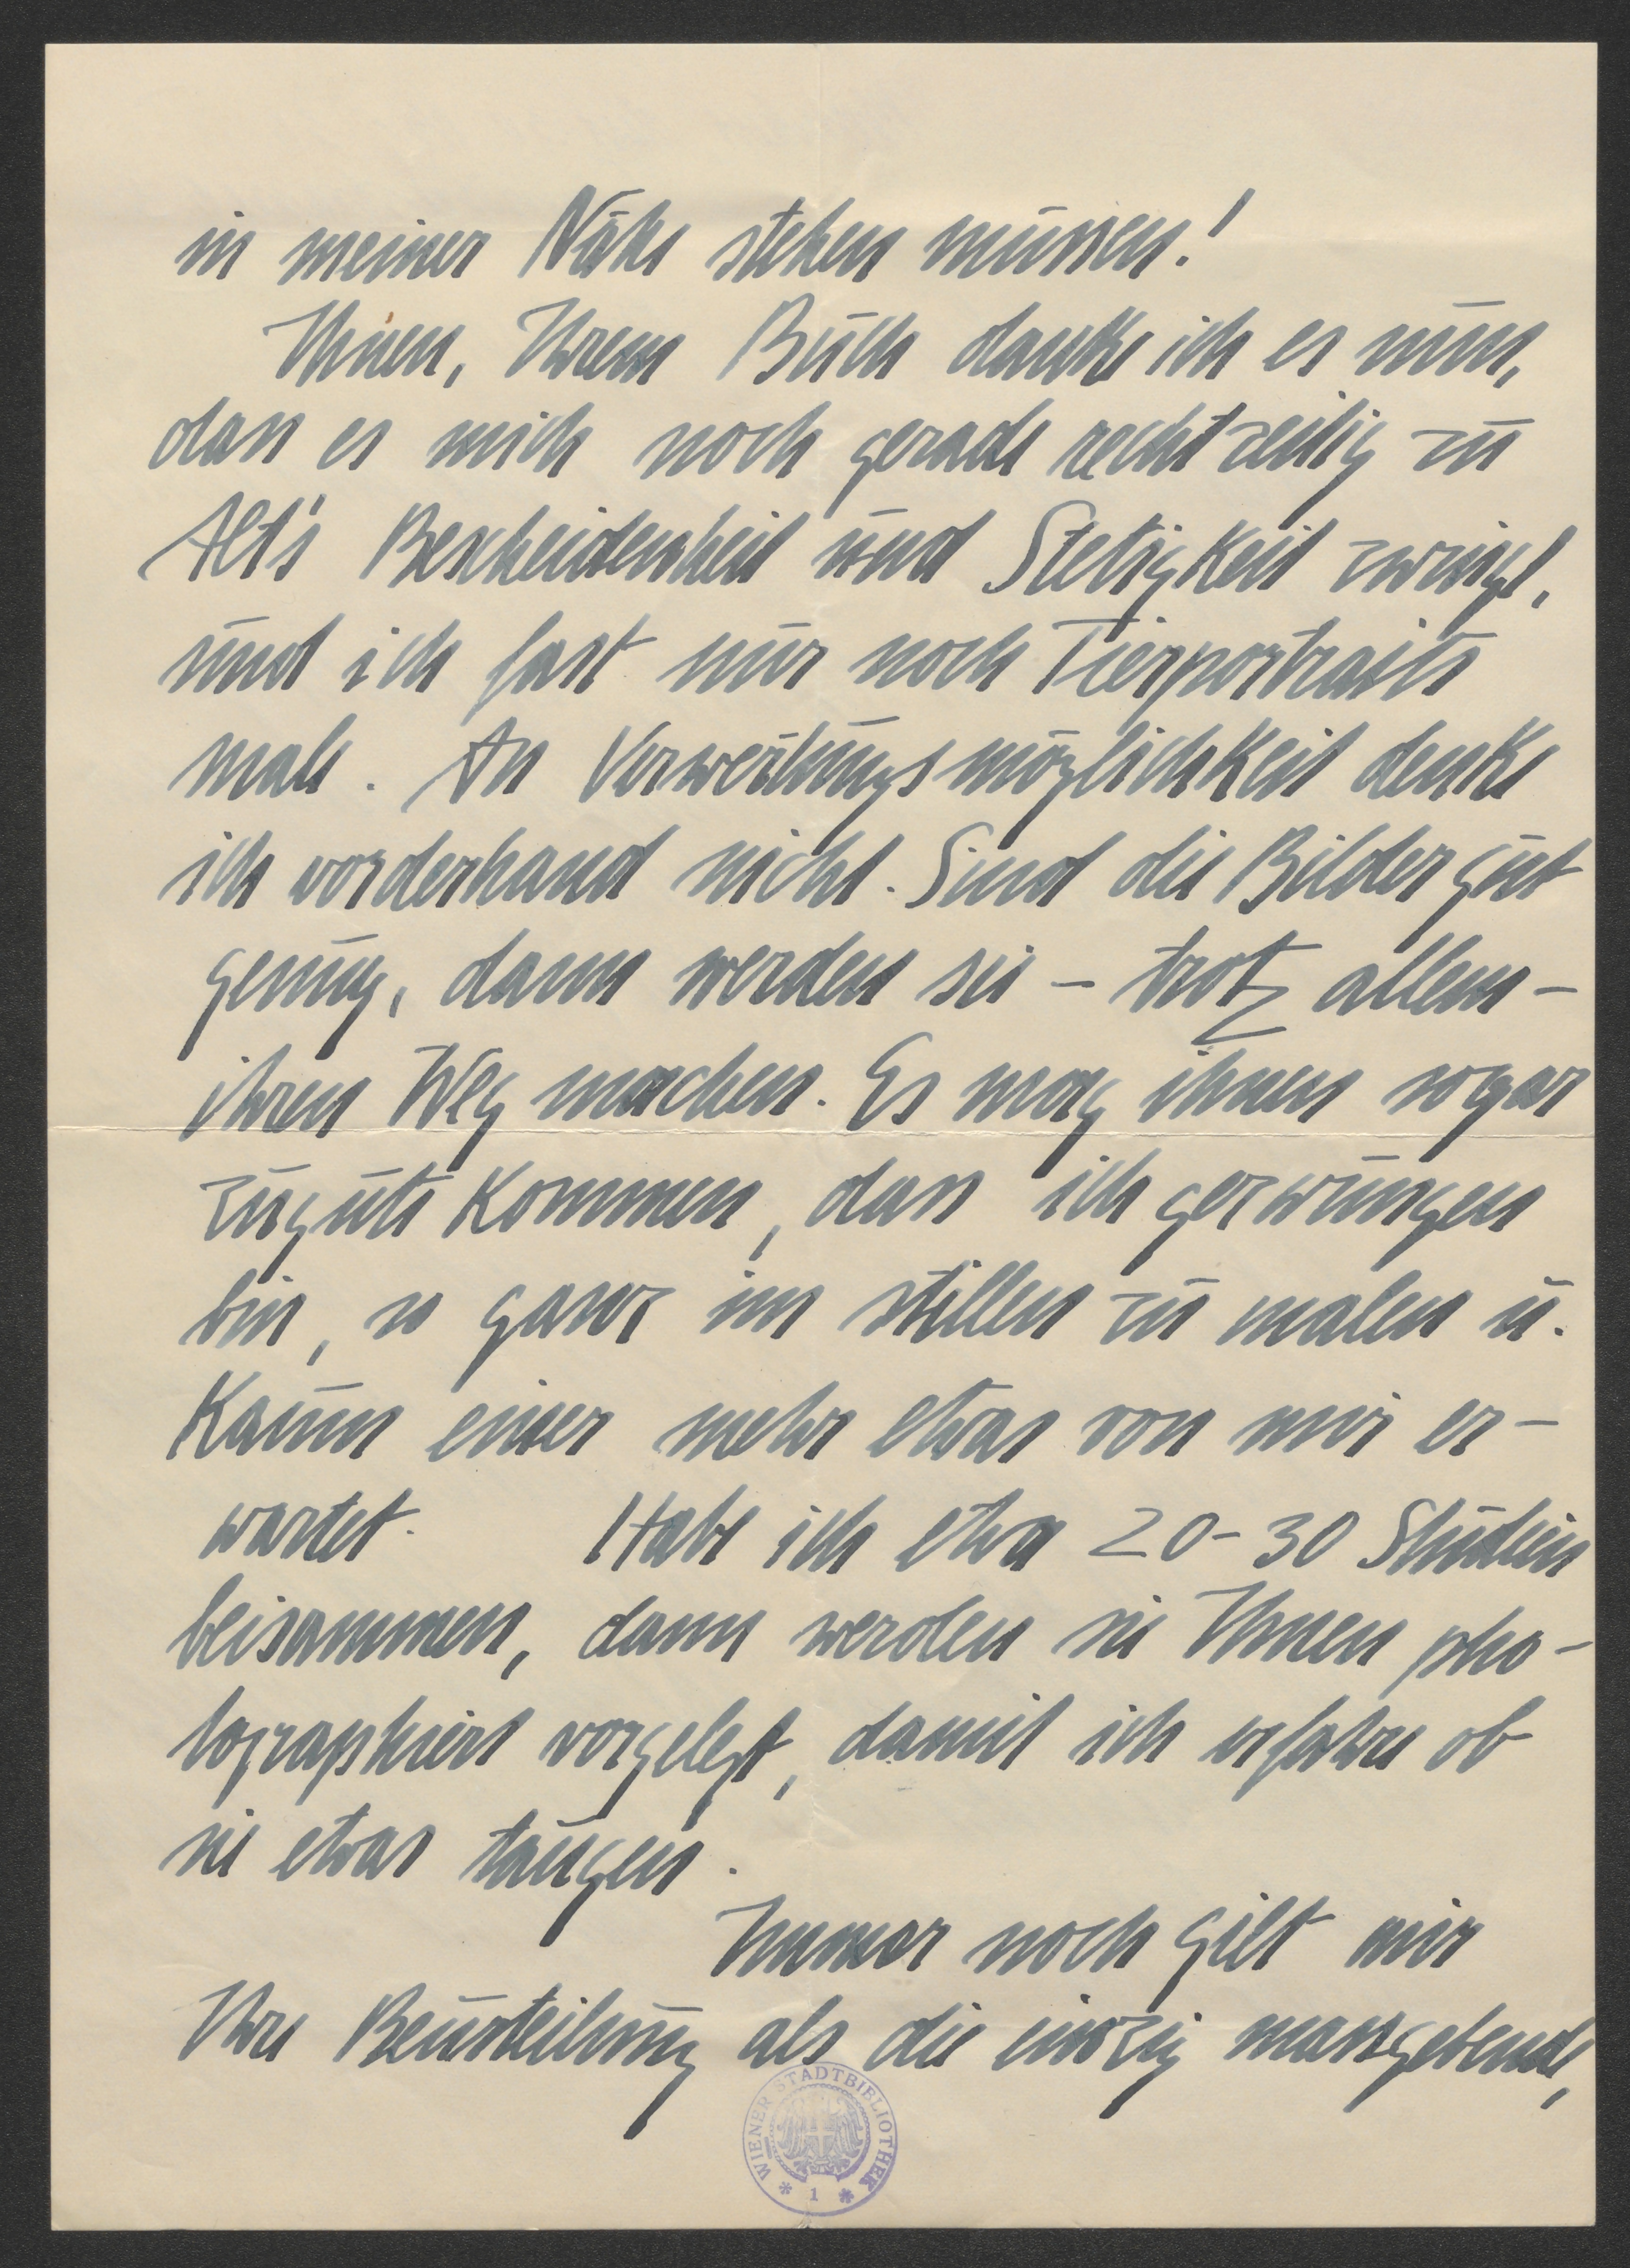 in meiner Nähe stehen müssen!
Ihnen, Ihrem Buch danke ich es nun,
dass es mich noch gerade rechtzeitig zu
Alt's Bescheidenheit und Stetigkeit zwingt,
und ich fast nur noch Tierportraits
male. An Verwertungsmöglichkeit denke
ich vorderhand nicht. Sind die Bilder gut
genug, dann werden sie – trotz allem –
ihren Weg machen. Es mag ihnen sogar
zugute kommen, dass ich gezwungen
bin, so ganz im stillen zu malen u.
kaum einer mehr etwas von mir er-
wartet. Habe ich etwa 20-30 Studien
beisammen, dann werden sie Ihnen pho-
tographiert vorgelegt, damit ich erfahre ob
sie etwas taugen.
Immer noch gilt mir
Ihre Beurteilung als die einzig massgebende,
WIENER STADTBIBLIOTHEK
* 1 *